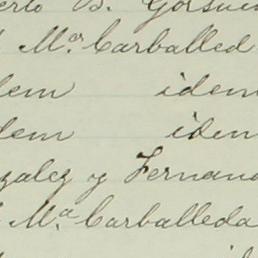 erto B. Gorsue
Mᵃʳ Carballed
dem idem
dem iden
nzalez y Fernand
Mª Carballeda